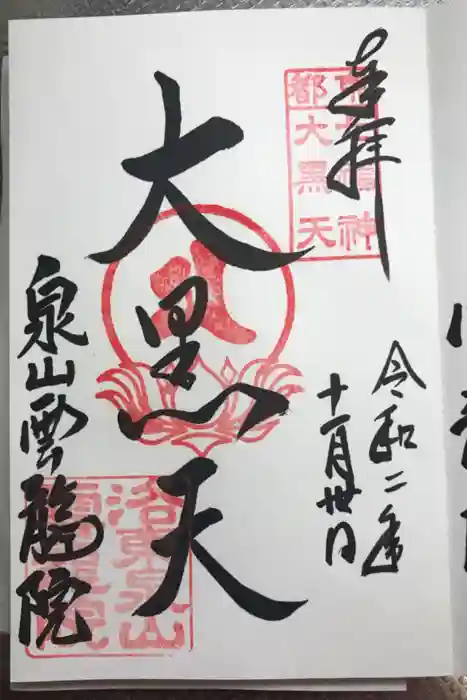 奉拝
令和二年
十一月廿日
大黒天
泉山雲龍院
京七福神
都大黒天
洛東泉山